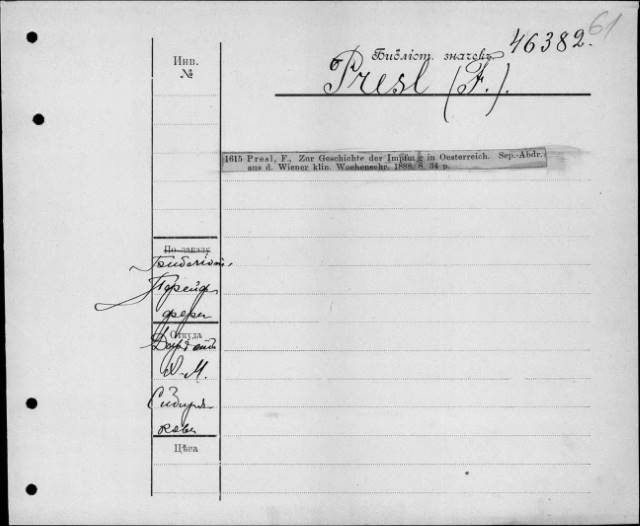 61
46382.
Библіот. значекъ
Presl (F.).
Инв.
№
1615 Presl, F., Zur Geschichte der Impfung in Oesterreich. Sep.-Abdr.
aus d. Wiener klin. Wochenschr. 1888. 8. 34 p.
По заказу
Библіот.
Пфейф
фера
Откуда
А. М.
Сибиря
кова
Цѣна